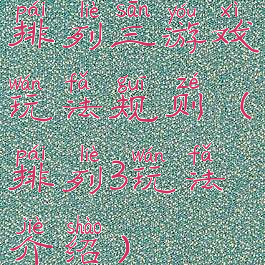 pái liè sān yóu xì
排列三游戏
wán fǎ guī zé
玩法规则（
pái liè wán fǎ
排列3玩法
jiè shào
介绍）